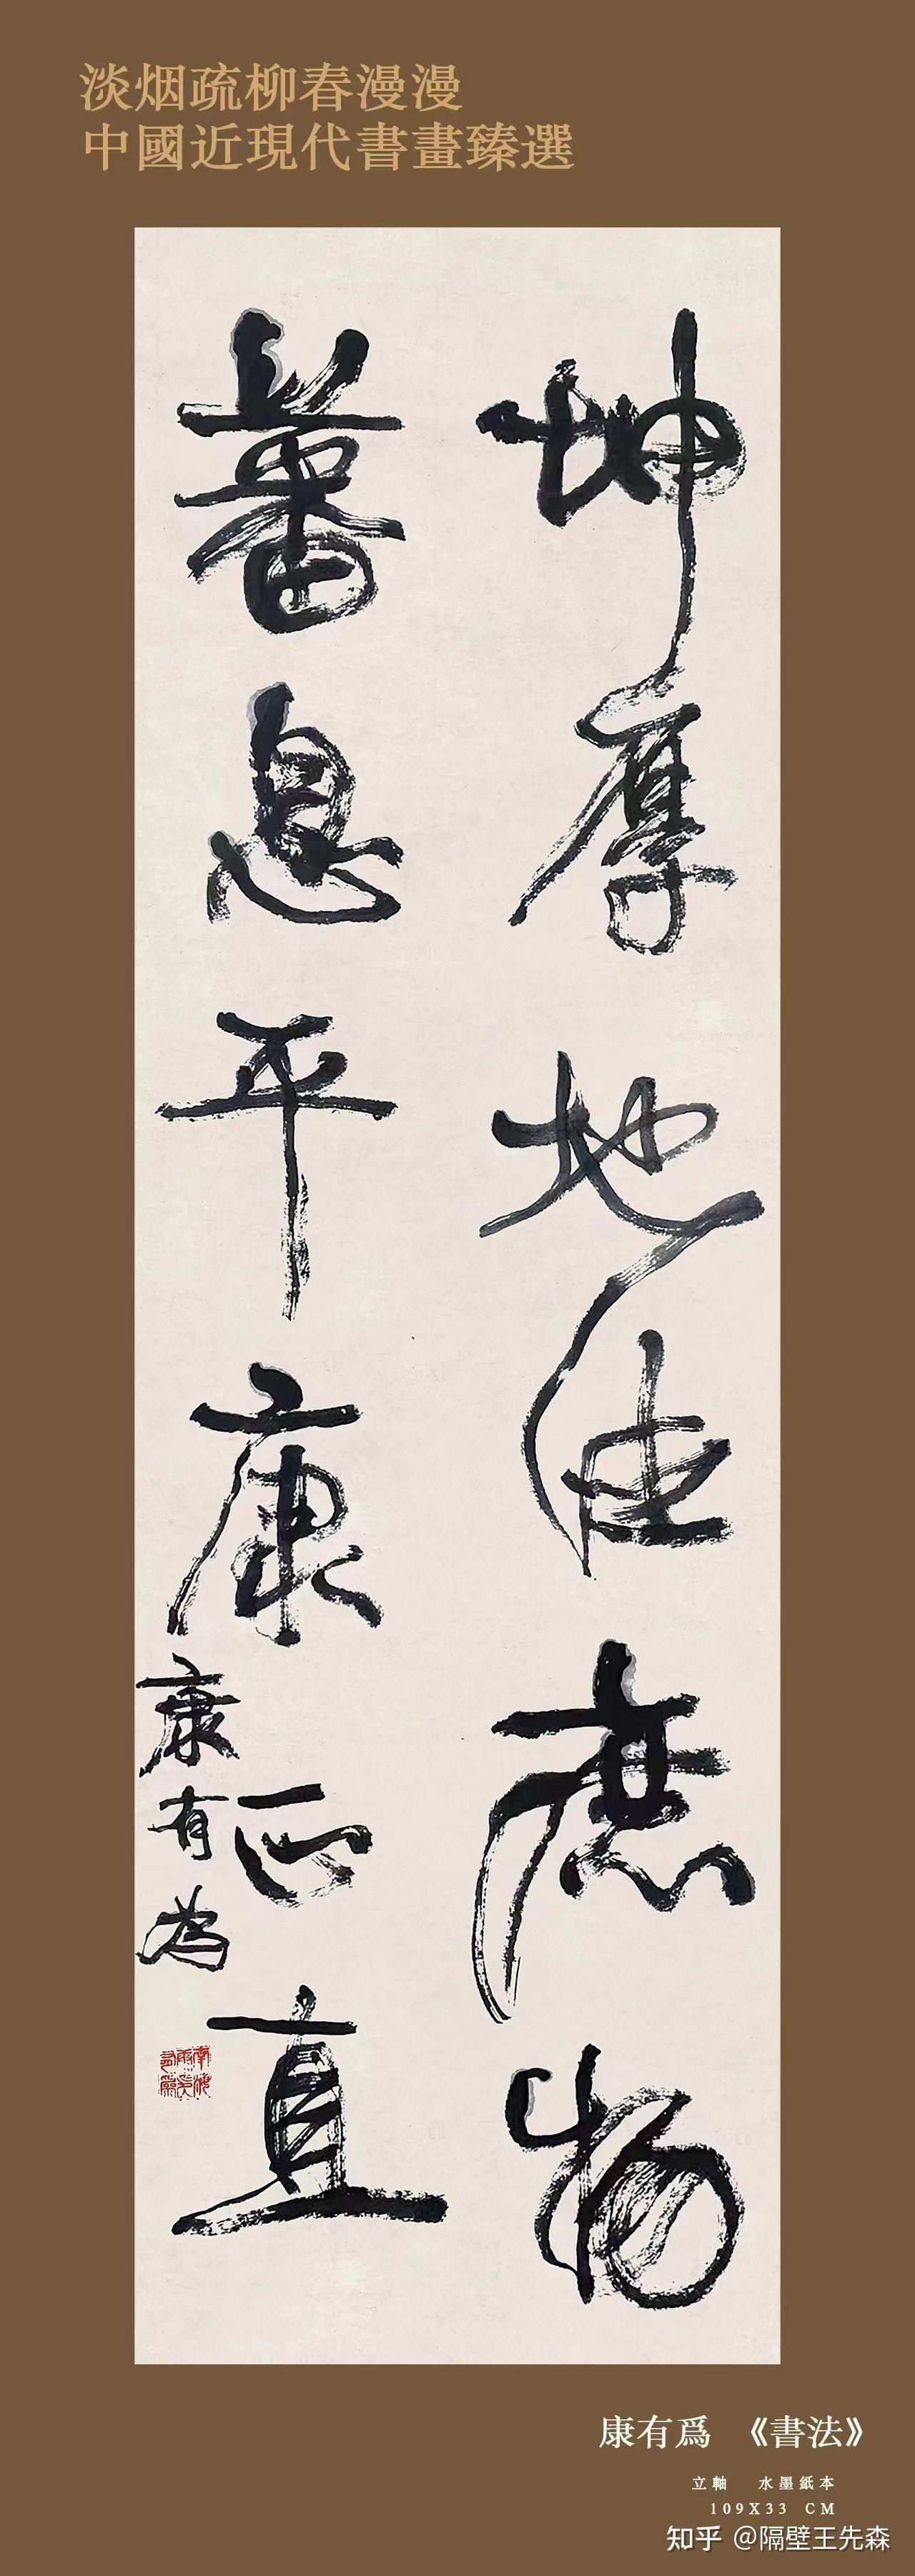 淡烟疏柳春漫漫
中國近現代書畫臻選
坤厚地德庶物
蕃息平康正直
康有為
康有爲 《書法》
立軸 水墨紙本
109X33 CM
知乎 @隔壁王先森